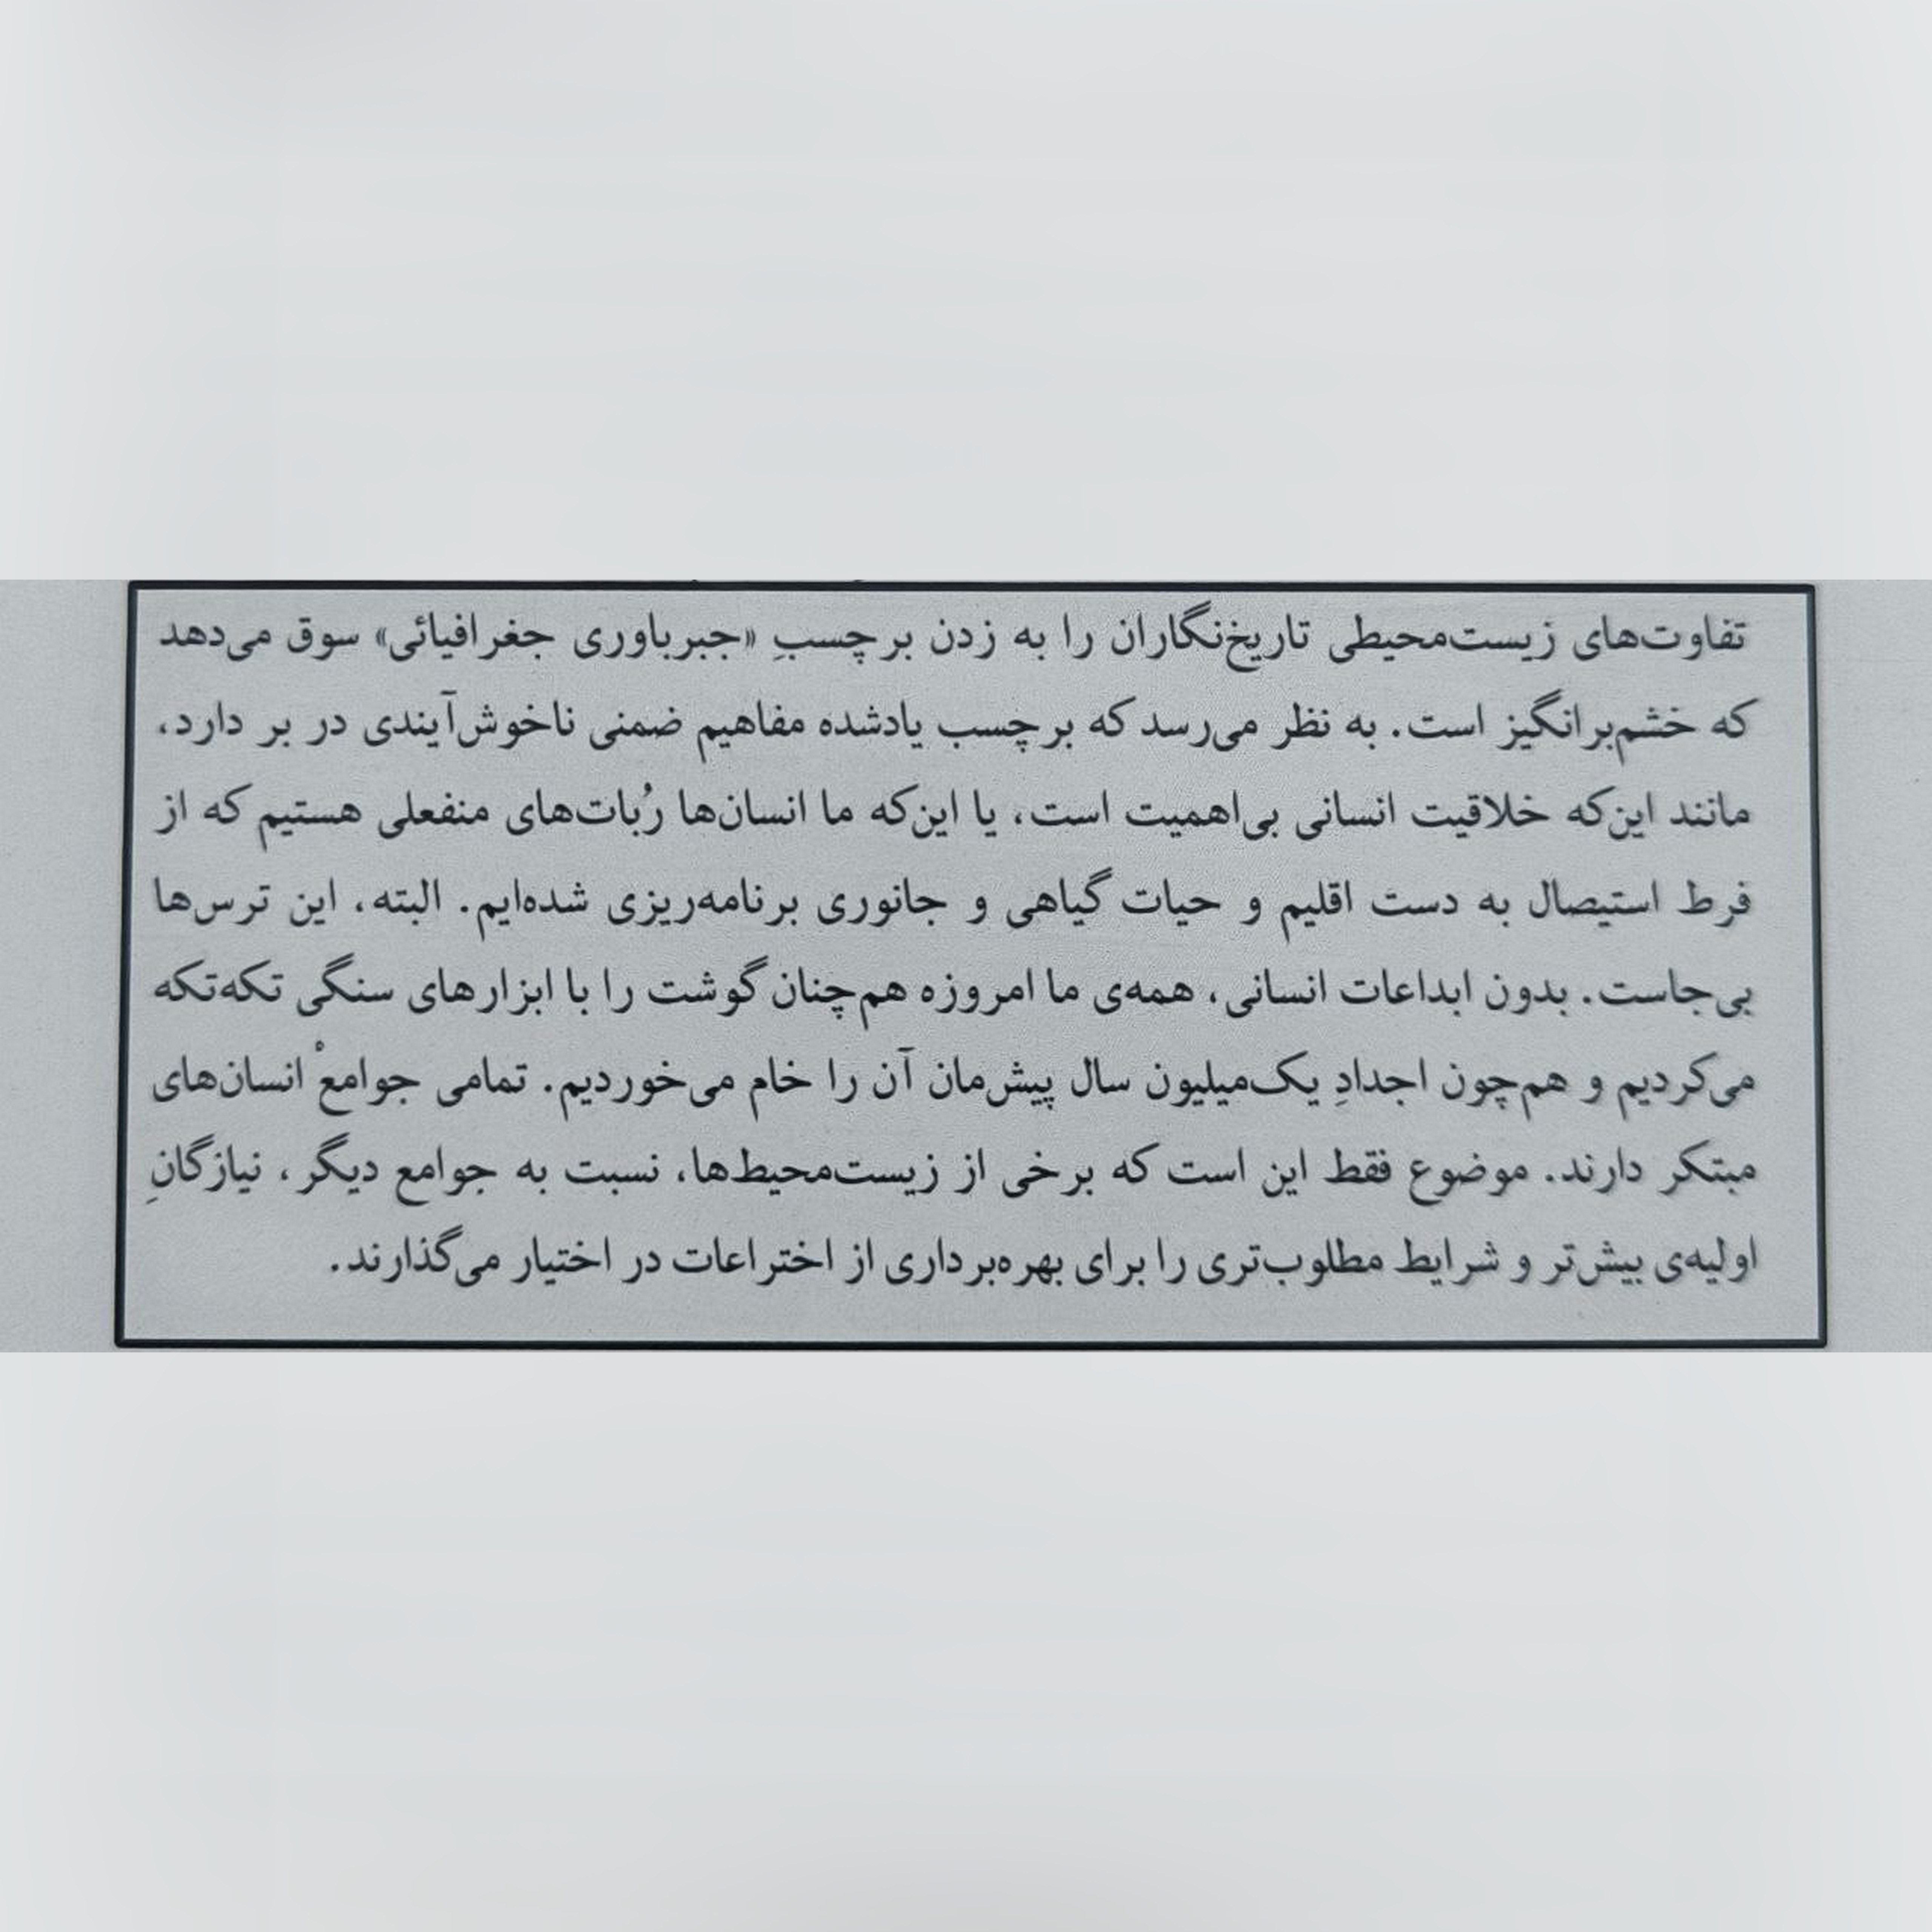 تفاوت‌های زیست‌محیطی تاریخ‌نگاران را به زدن برچسبِ «جبرباوری جغرافیائی» سوق می‌دهد
که خشم‌برانگیز است. به نظر می‌رسد که برچسب یادشده مفاهیم ضمنی ناخوش‌آیندی در بر دارد،
مانند این‌که خلاقیت انسانی بی‌اهمیت است، یا این‌که ما انسان‌ها رُبات‌های منفعلی هستیم که از
فرط استیصال به دست اقلیم و حیات گیاهی و جانوری برنامه‌ریزی شده‌ایم. البته، این ترس‌ها
بی‌جاست. بدون ابداعات انسانی، همه‌ی ما امروزه هم‌چنان گوشت را با ابزارهای سنگی تکه‌تکه
می‌کردیم و هم‌چون اجدادِ یک‌میلیون سال پیش‌مان آن را خام می‌خوردیم. تمامی جوامعْ انسان‌های
مبتکر دارند. موضوع فقط این است که برخی از زیست‌محیط‌ها، نسبت به جوامع دیگر، نیازگانِ
اولیه‌ی بیش‌تر و شرایط مطلوب‌تری را برای بهره‌برداری از اختراعات در اختیار می‌گذارند.